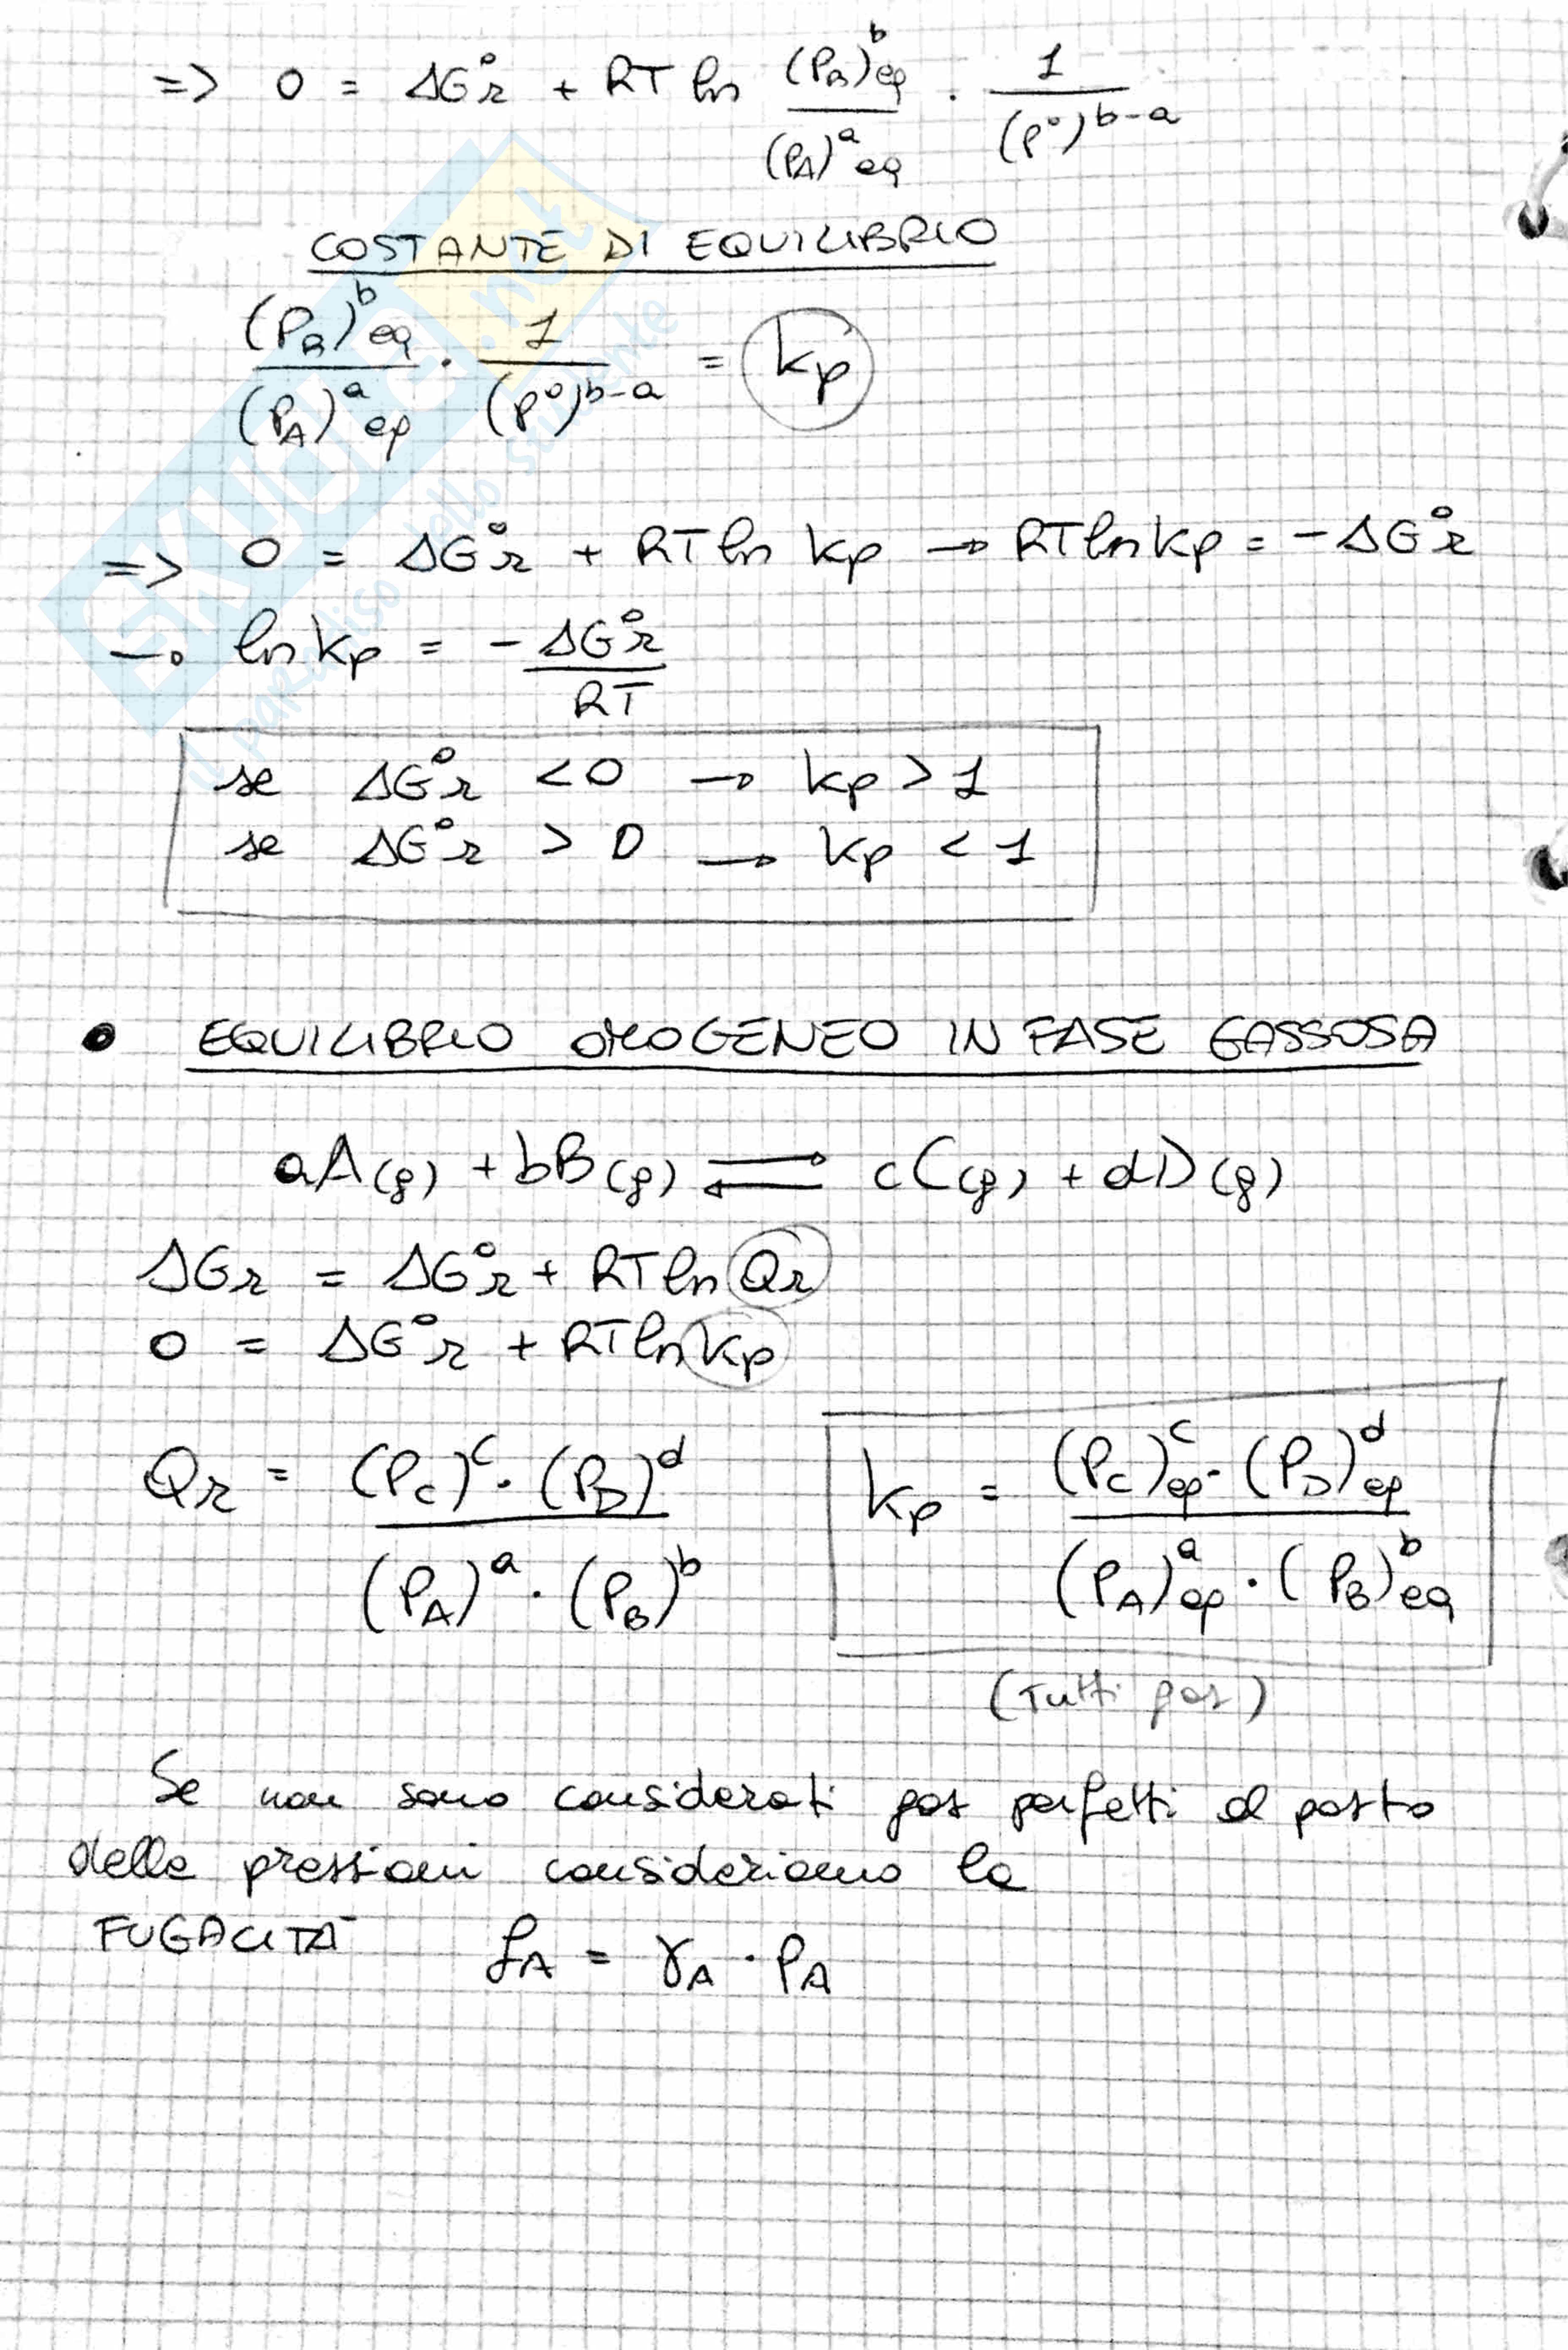 => 0 = ΔG°r + RT ln (PB)^b eq / (PA)^a eq · 1 / (P°)^b-a
COSTANTE DI EQUILIBRIO
(PB)^b eq / (PA)^a eq · 1 / (P°)^b-a = kp
=> 0 = ΔG°r + RT ln kp → RT ln kp = -ΔG°r
→ ln kp = - ΔG°r / RT
se ΔG°r < 0 → kp > 1
se ΔG°r > 0 → kp < 1
• EQUILIBRIO OMOGENEO IN FASE GASSOSA
aA(g) + bB(g) ⇌ cC(g) + dD(g)
ΔGr = ΔG°r + RT ln Qr
0 = ΔG°r + RT ln kp
Qr = (Pc)^c · (PD)^d / (PA)^a · (PB)^b
kp = (Pc)^c eq · (PD)^d eq / (PA)^a eq · (PB)^b eq
(Tutti gas)
Se non sono considerati gas perfetti al posto
delle pressioni consideriamo la
FUGACITÀ fA = γA · PA
SKUOLA.net
il paradiso dello studente